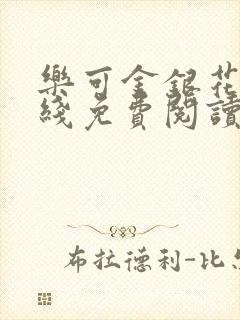 樂可金銀花
綫免費閱讀
布拉德利-比